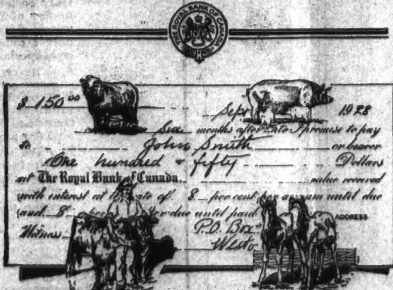 THE ROYAL BANK OF CANADA
$ 150 00 Sept 1928
Six months after date I promise to pay
to John Smith or bearer
One hundred & fifty Dollars
at The Royal Bank of Canada value received
with interest at rate of 8 per cent per annum until due
and 8 due until paid ADDRESS
Witness P.O. Box